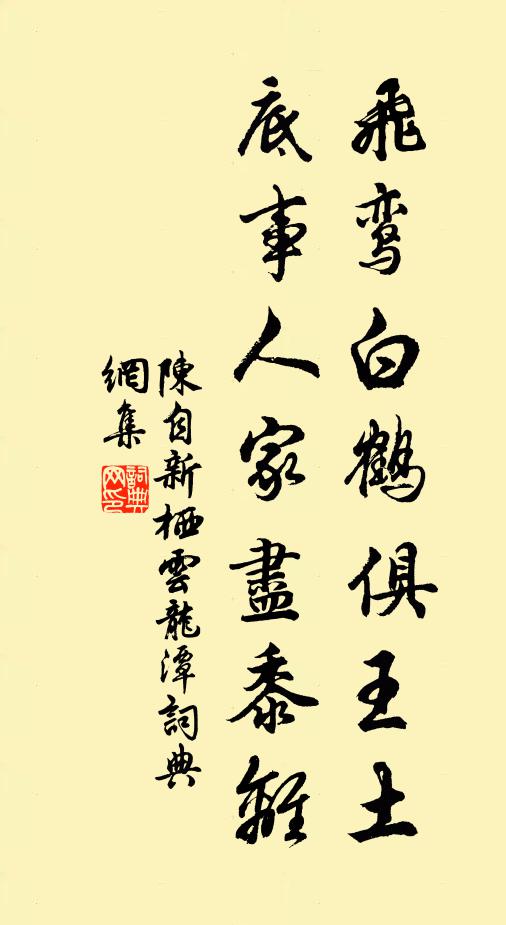 飛鸞白鶴俱王土
底事人家盡黍離
陳自新栖雲龍潭詞典
網集
詞典網印